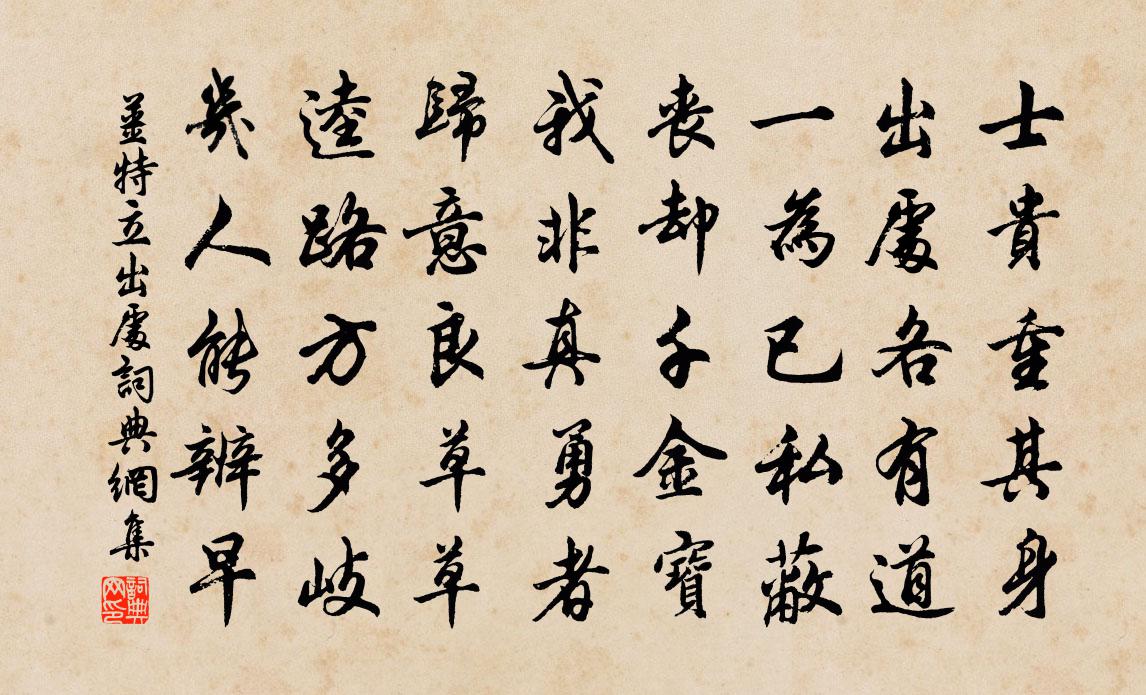 士貴重其身
出處各有道
一為己私蔽
喪却千金寶
我非真勇者
歸意良草草
逵路方多岐
幾人能辨早
姜特立出處詞典網集
詞典網印